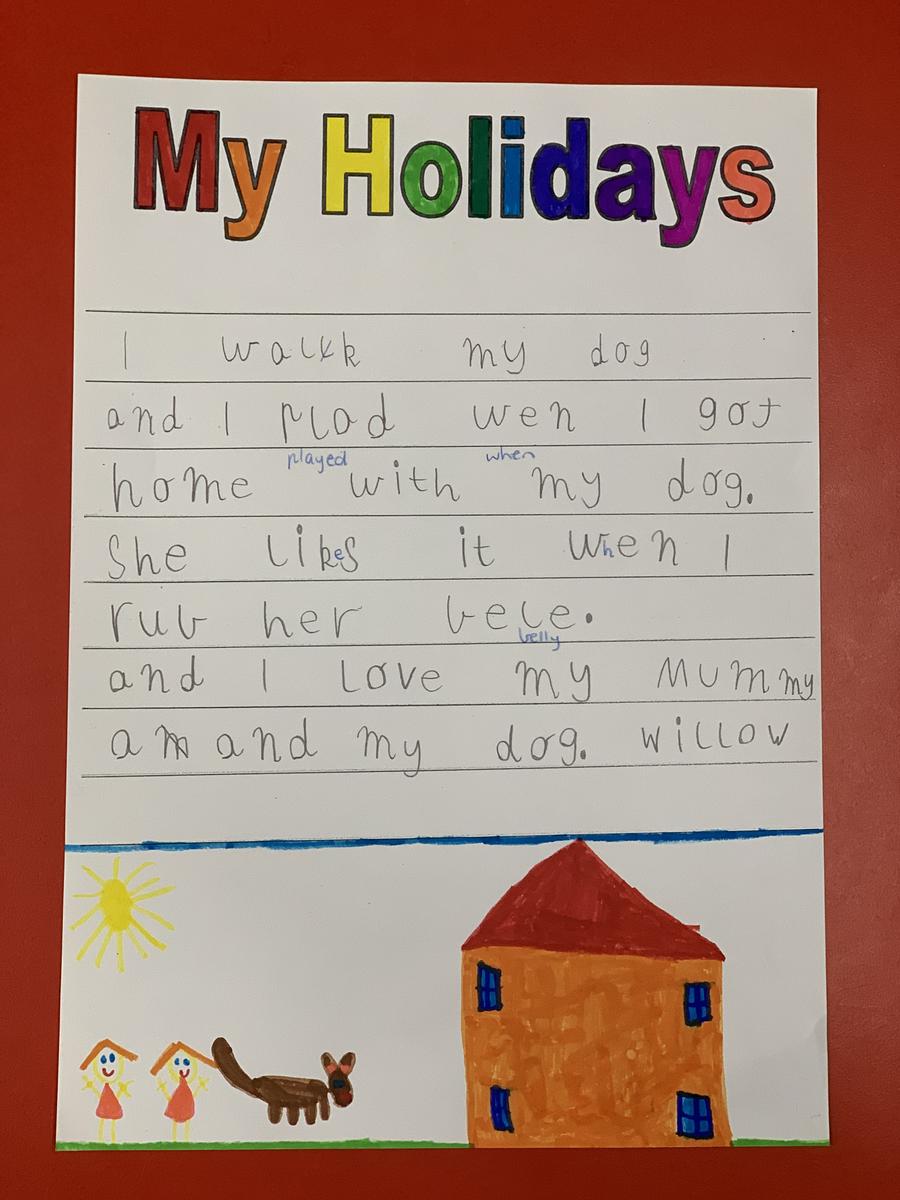 My Holidays
I walkk my dog
and I plad wen I got
played when
home with my dog.
She likes it when I
rub her bele.
belly
and I Love my Mummy
am and my dog. willow